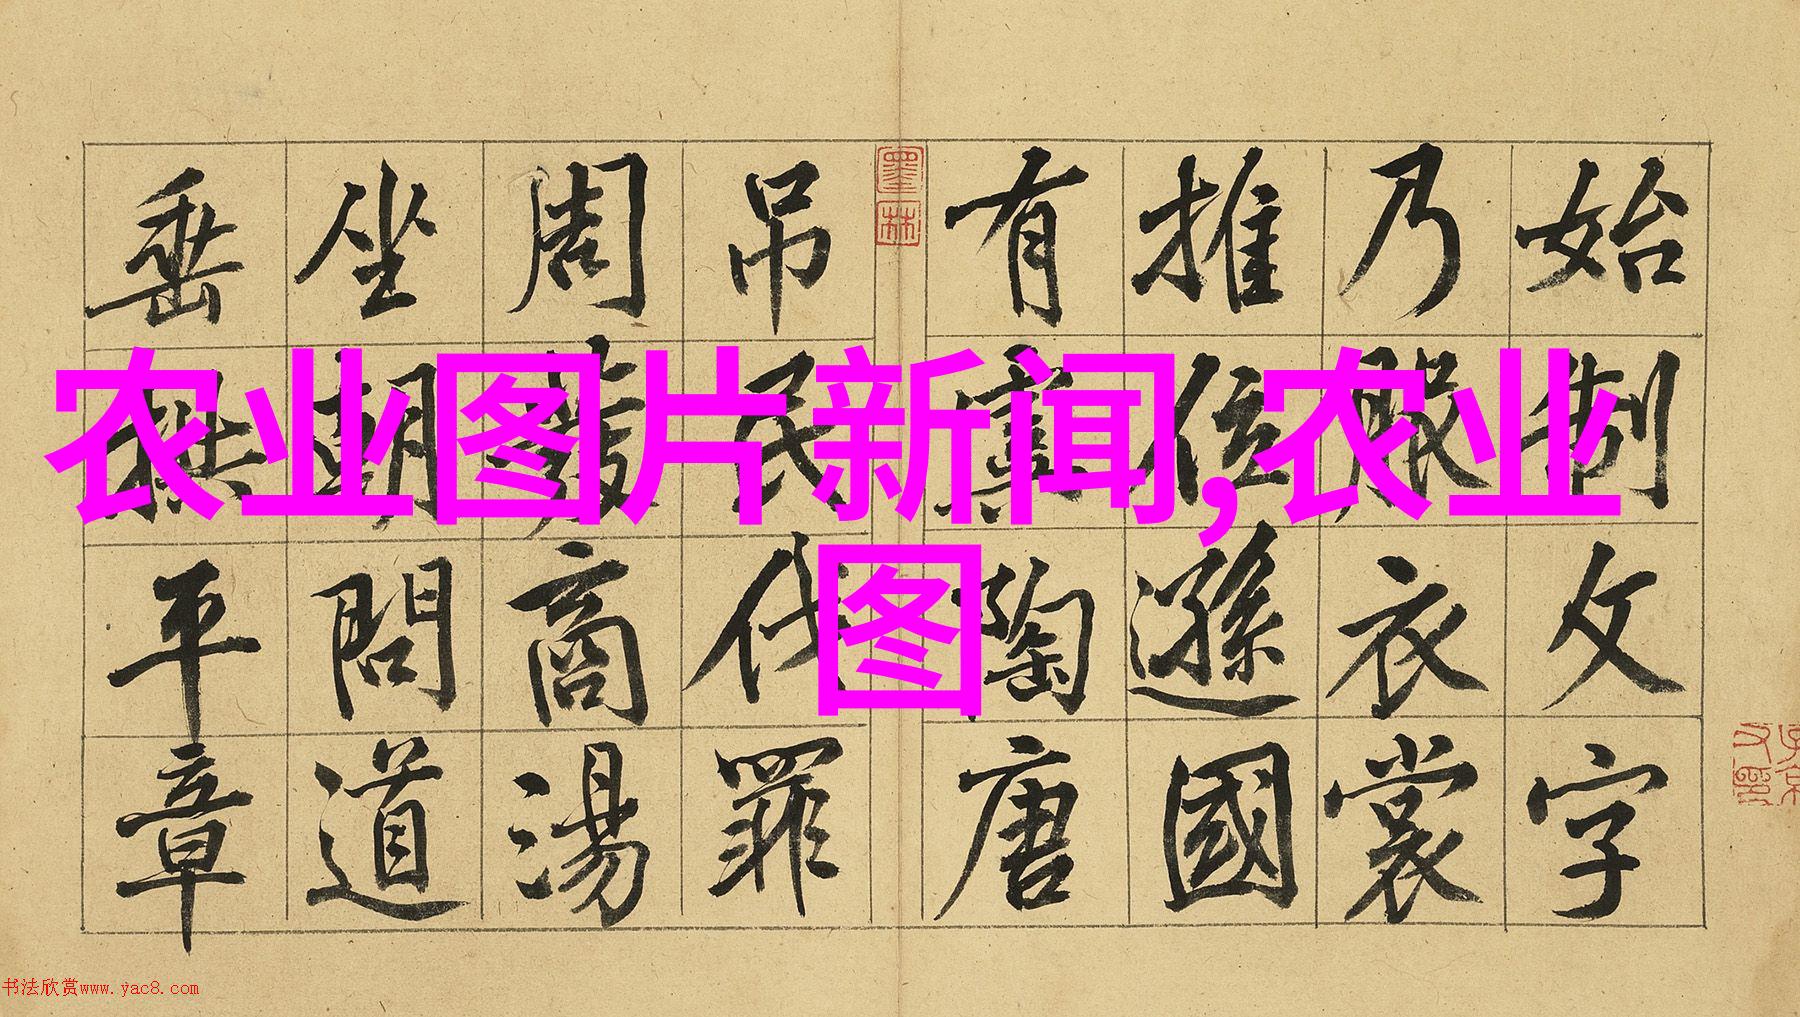 农业图片新闻,农业
图
始制文字
乃服衣裳
推位遜國
有虞陶唐
吊民伐罪
周發商湯
坐朝問道
垂拱平章
墨林
书法欣赏www.yac8.com